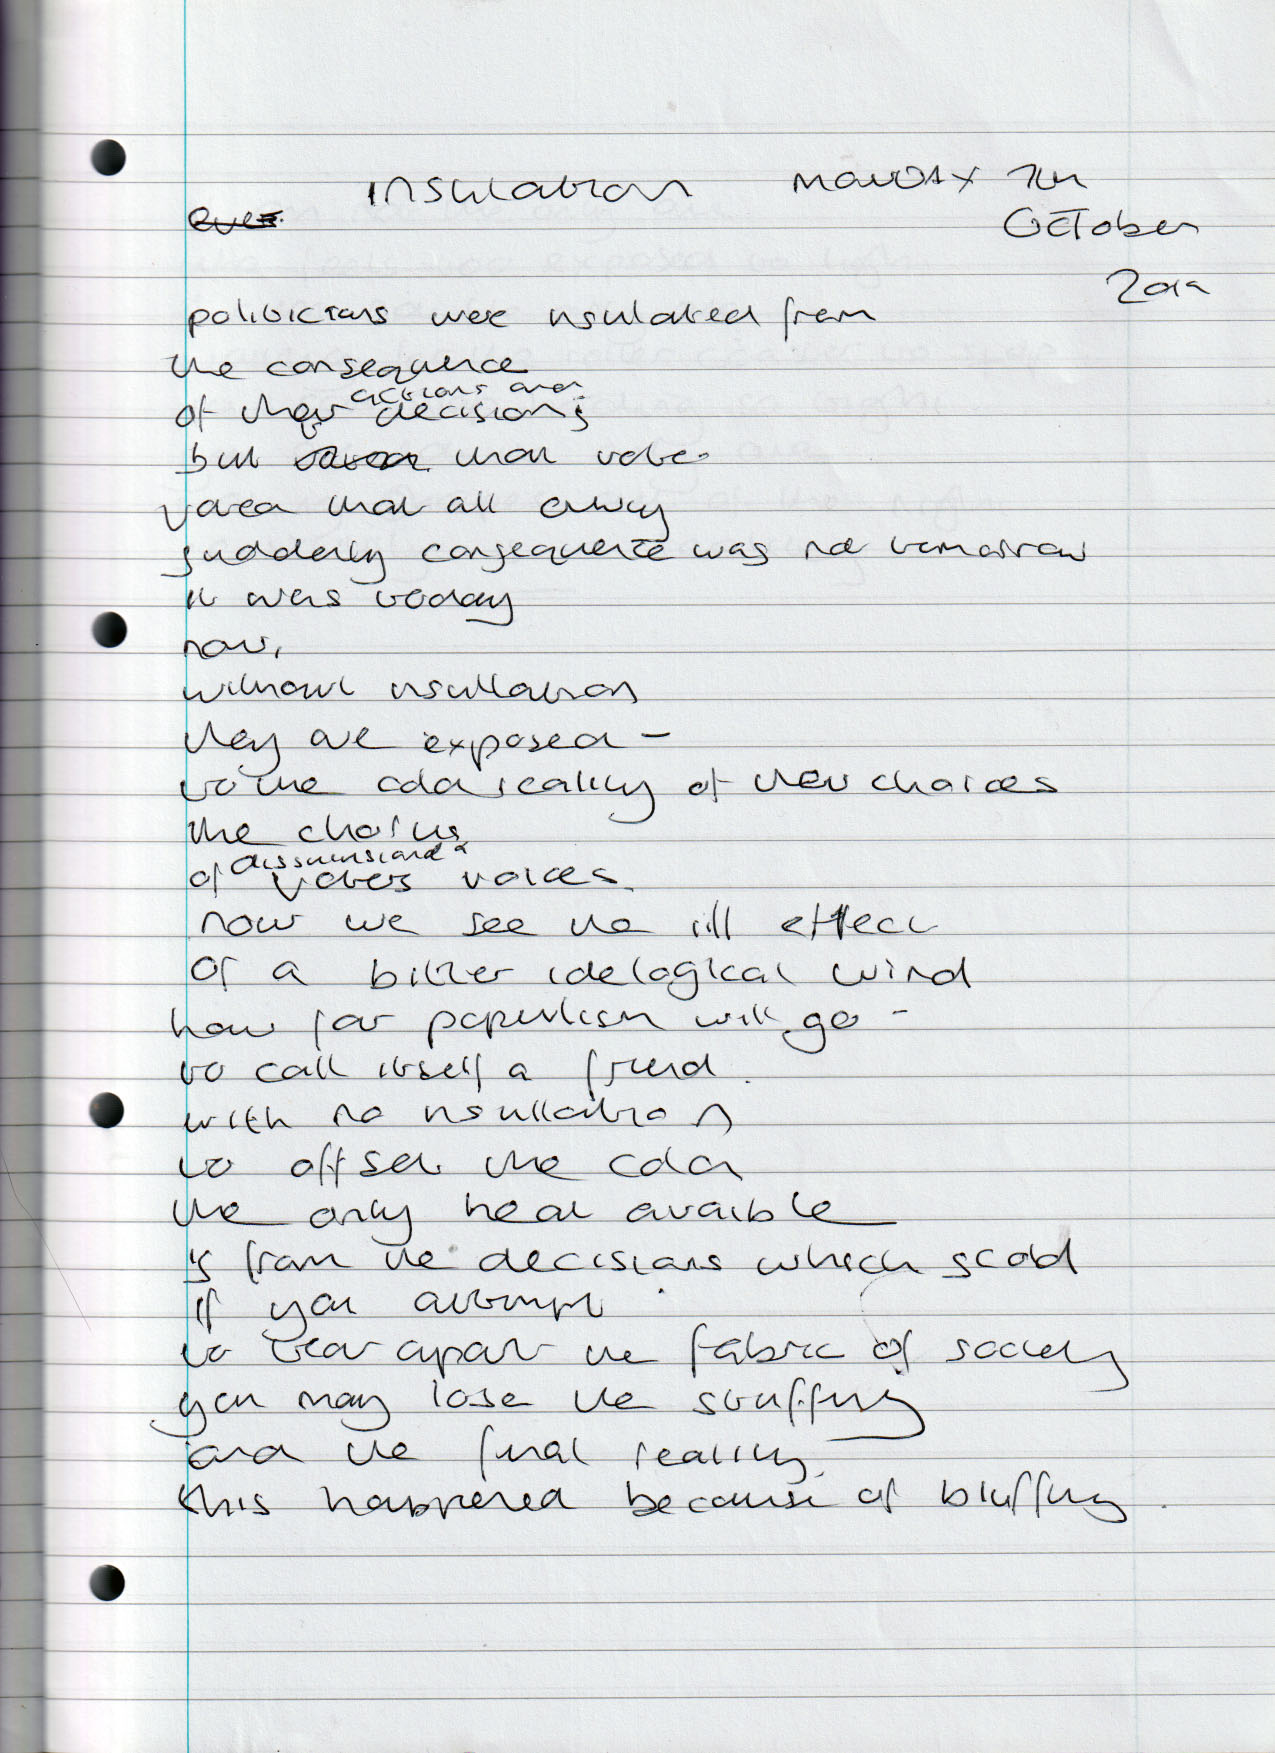 Insulation Monday 7th
October
2019
politicians were insulated from
the consequence
of their actions and decisions
but that vote
voted that all away
suddenly consequence was not tomorrow
it was today
now,
without insullation
they are exposed -
to the cold reality of their choices
the chorus
of voters voices.
now we see the ill effect
of a bitter idelogical wind
how far populism will go -
to call itself a friend.
with no insullation
to offset the cold
the only heat avaible
is from the decisions which scold
if you attempt
to tear apart the fabric of society
you may lose the stuffing
and the final reality
this happened because of bluffing.